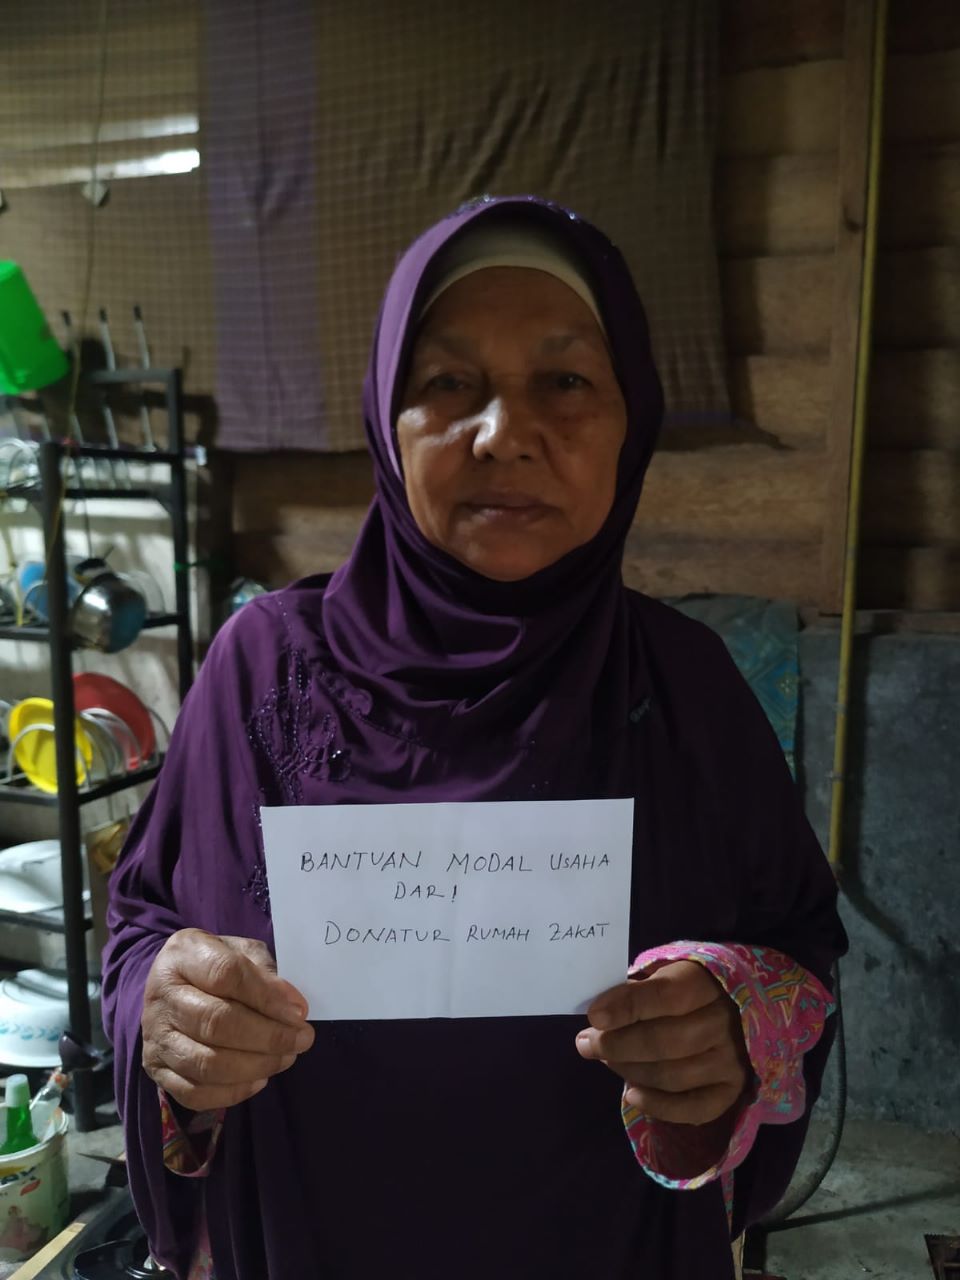 BANTUAN MODAL USAHA
DARI
DONATUR RUMAH ZAKAT